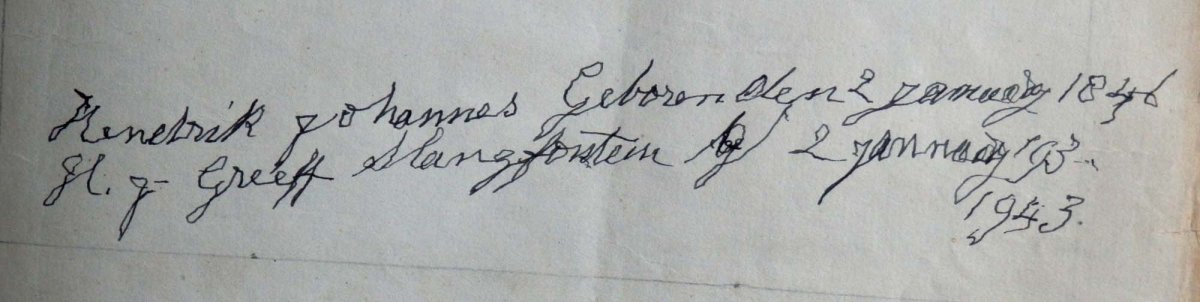 Hendrik Johannes Geboren den 2 januarij 1846
H. J. Greeff Slangfontein 2 januarij 193
1943.